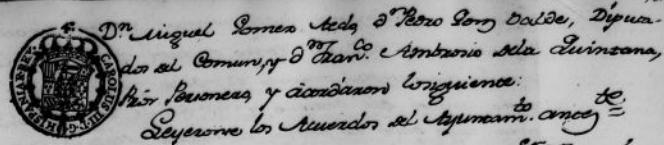 Dn Miguel Gomez Aeda, dn Pedro Gom Balde, Diputa-
dos del Comun, y dn Franco Ambrosio dela Quintana,
Prór Personero, y acordáron losiguiente:
Leyeronse los Acuerdos del Ayuntamto anteste=
CAROLUS III D G HISPANIAR REX